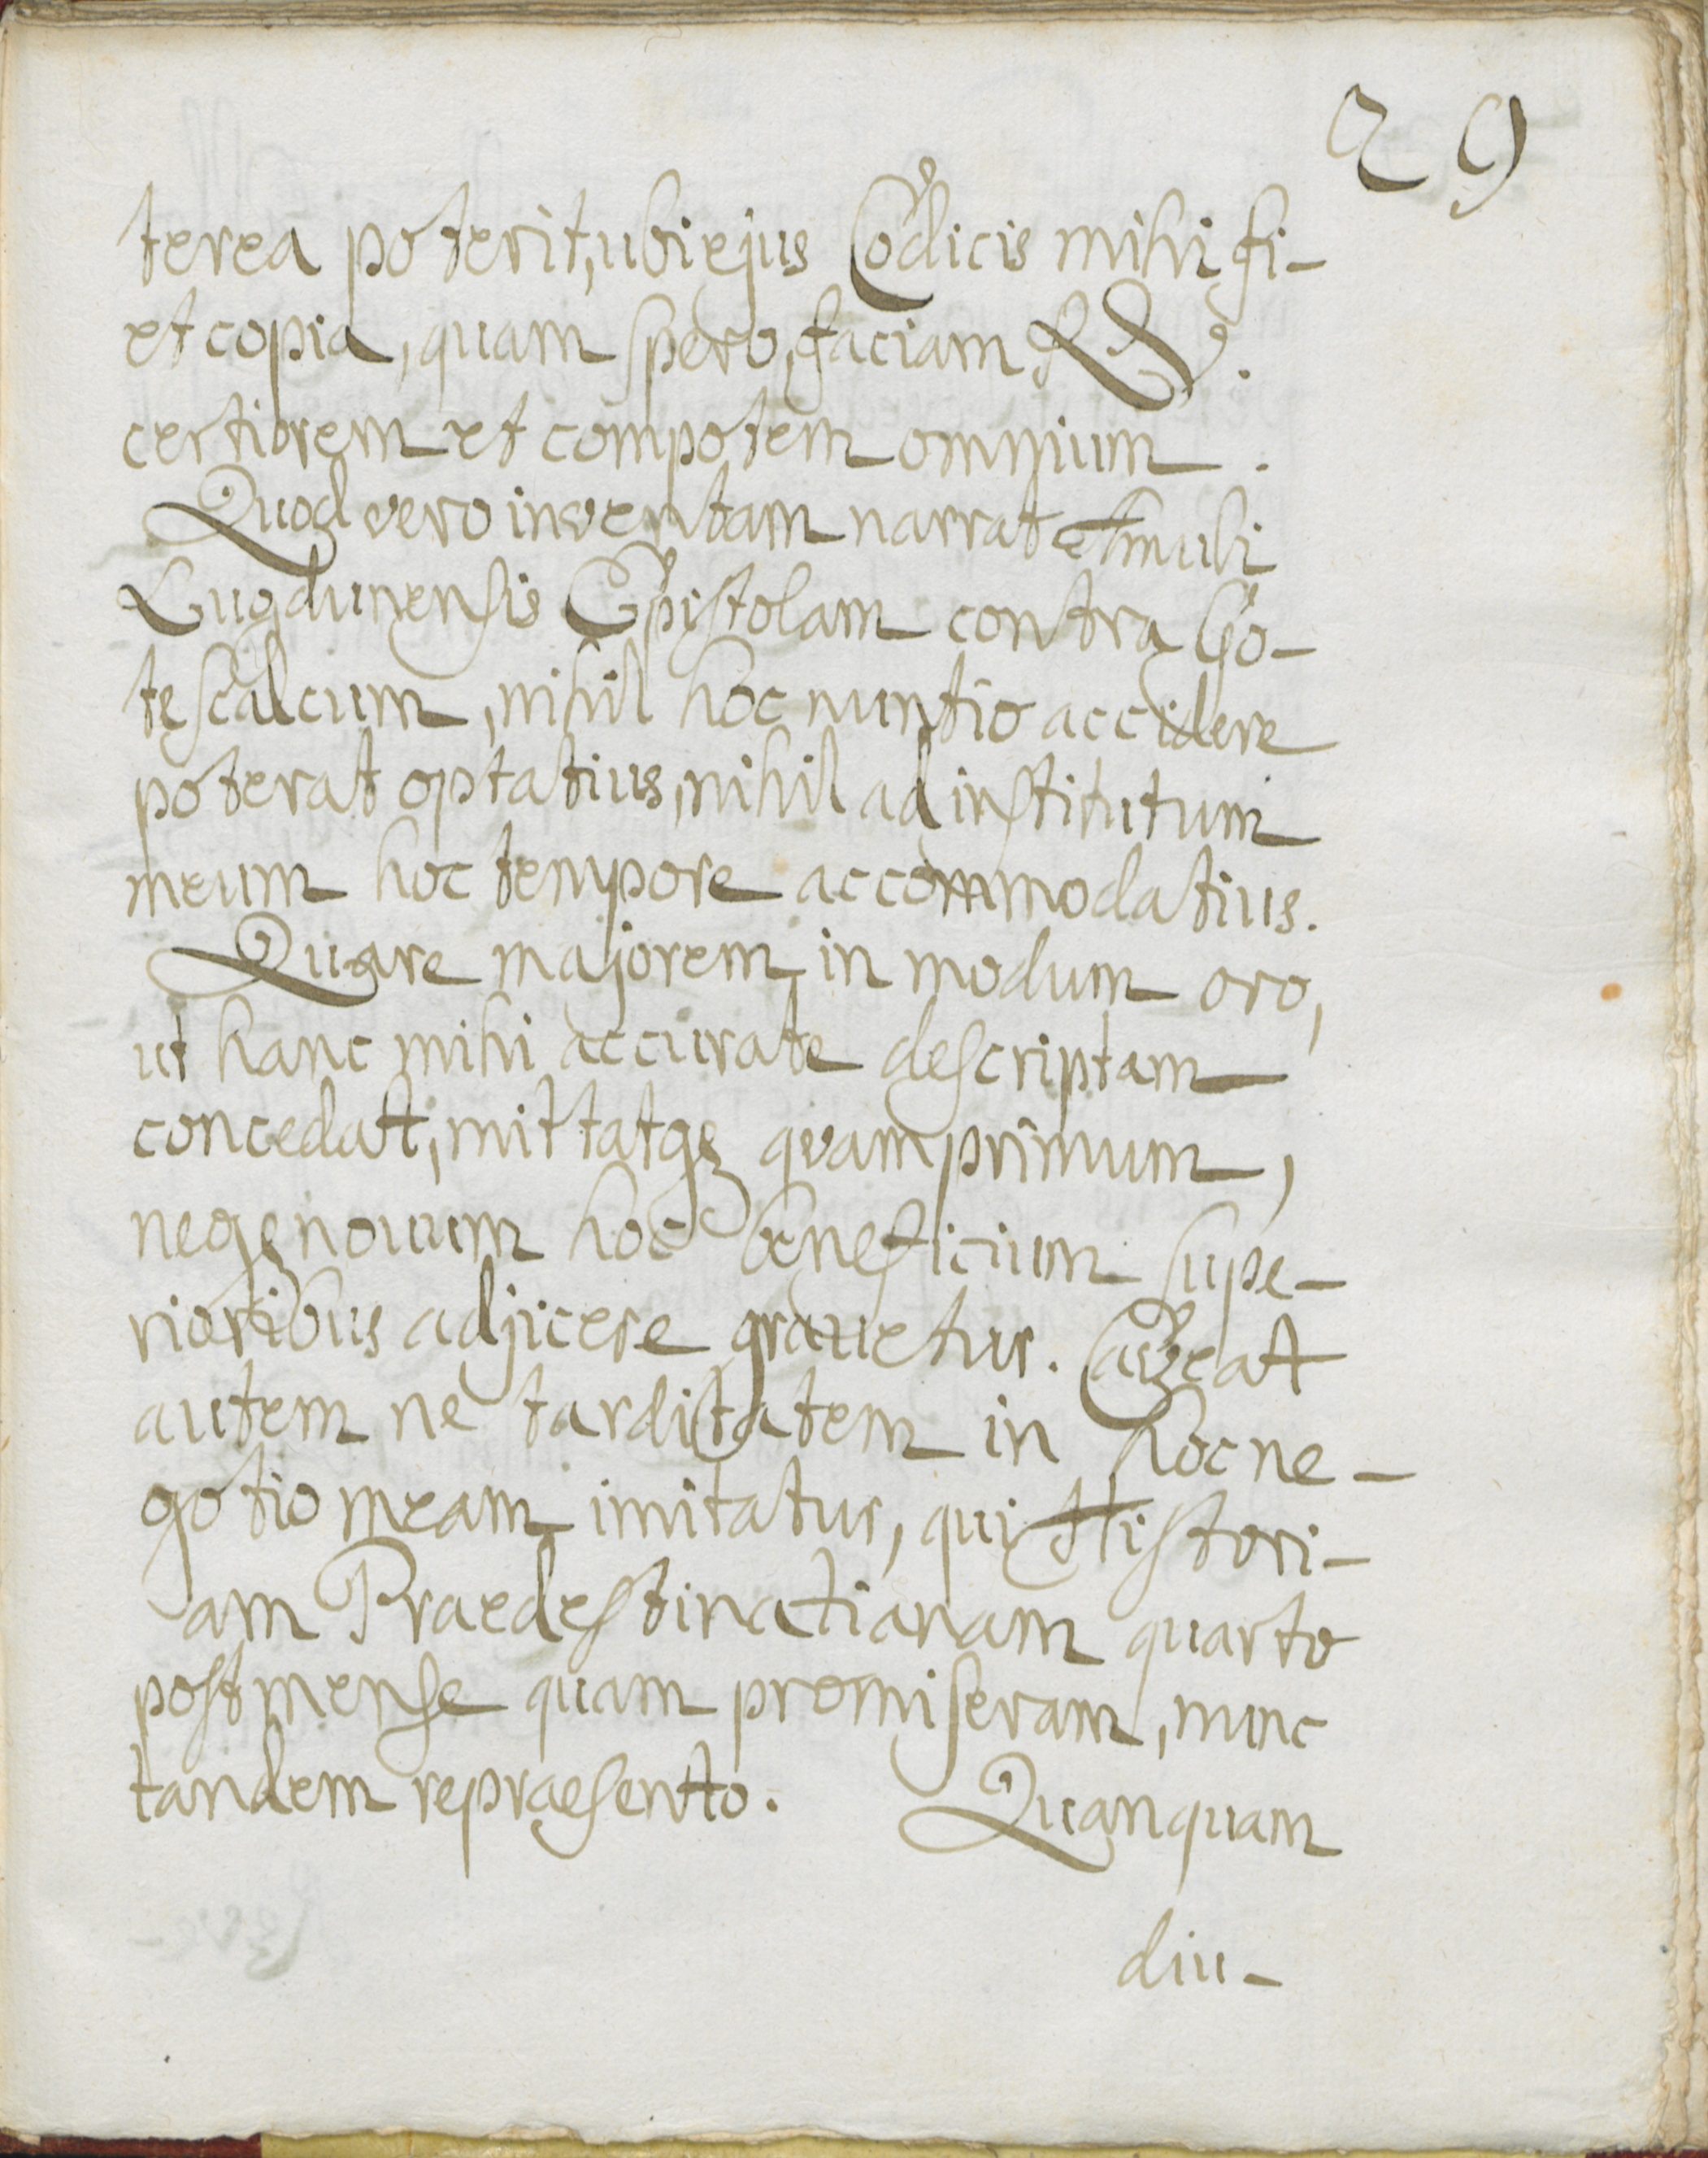 29
terea poterit, ubi ejus Codicis mihi fi-
et copia, quam spero, faciam
certiorem et compotem omnium.
Quod vero inventam narrat Amuli
Lugdunensis Epistolam contra Go-
tescalcum, nihil hoc nuntio accidere
poterat optatius, nihil ad institutum
meum hoc tempore accommodatius.
Quare majorem in modum oro,
ut hanc mihi accurate descriptam
concedat, mittatq; quamprimum,
neq; nouum hoc beneficium supe-
rioribus adjicere grauetur. Caveat
autem ne tarditatem in hoc ne-
gotio meam imitatur, qui Histori-
am Praedestinatianam quarto
post mense quam promiseram, nunc
tandem repraesento. Quanquam
diu-